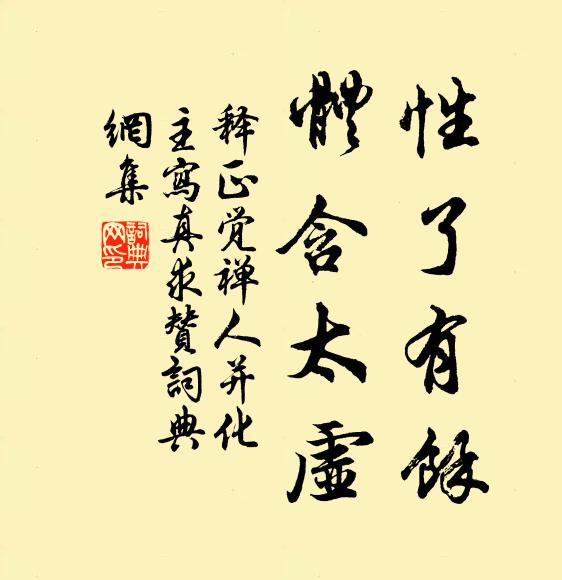 性了有餘
體含太虛
释正觉禅人并化
主寫真求贊詞典
網集
詞典网印